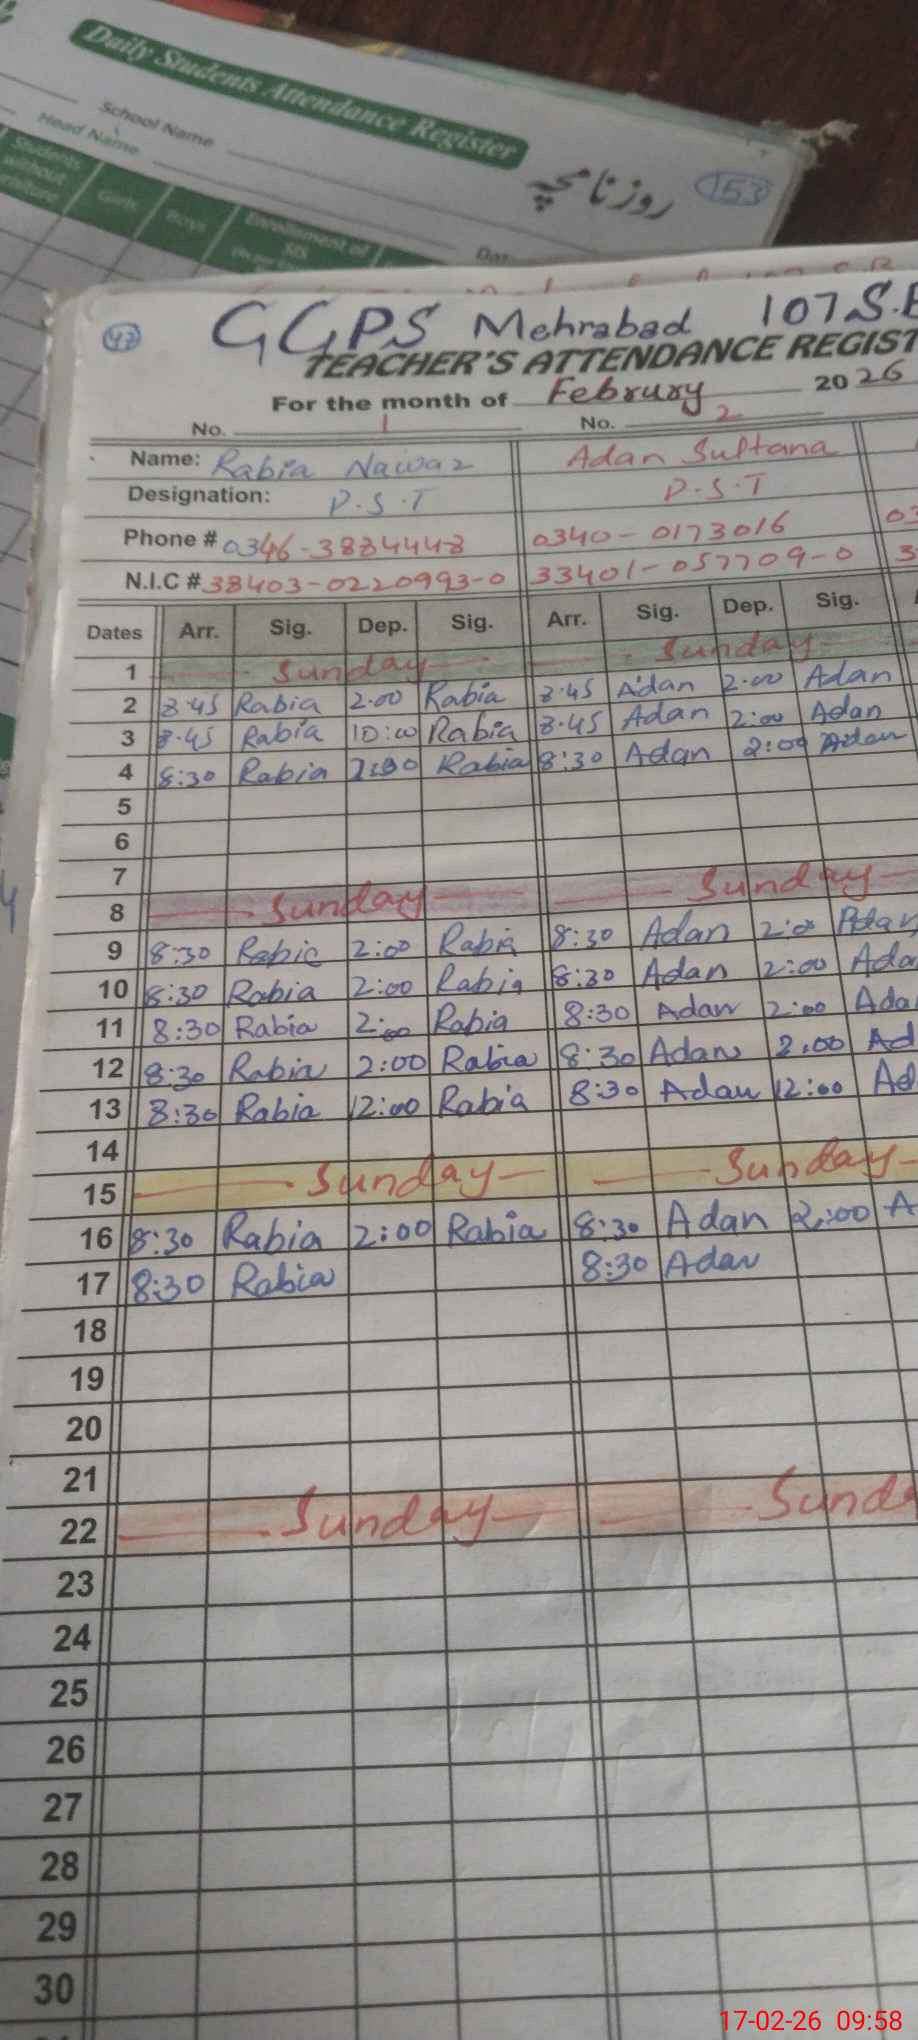 Daily Students Attendance Register
School Name
Head Name
Students without
Girls
Boys
Enrollment of SIS
روزنامچہ
153
47
GGPS Mehrabad 107 S.B
TEACHER'S ATTENDANCE REGIST
For the month of Februray 2026
No. 1 No. 2
Name: Rabia Nawaz Adan Sultana
Designation: P.S.T P.S.T
Phone # 0346-3884448 0340-0173016 03
N.I.C # 38403-0220993-0 33401-057709-0 3
Dates Arr. Sig. Dep. Sig. Arr. Sig. Dep. Sig.
1 Sunday Sunday
2 8.45 Rabia 2.00 Rabia 8.45 Adan 2.00 Adan
3 8.45 Rabia 10:00 Rabia 8.45 Adan 2:00 Adan
4 8:30 Rabia 2:00 Rabia 8:30 Adan 2:00 Adan
5
6
7
8 Sunday Sunday
9 8:30 Rabia 2:00 Rabia 8:30 Adan 2:00 Adan
10 8:30 Rabia 2:00 Rabia 8:30 Adan 2:00 Ada
11 8:30 Rabia 2:00 Rabia 8:30 Adan 2:00 Ada
12 8:30 Rabia 2:00 Rabia 8:30 Adan 2:00 Ad
13 8:30 Rabia 12:00 Rabia 8:30 Adan 12:00 Ad
14
15 Sunday Sunday
16 8:30 Rabia 2:00 Rabia 8:30 Adan 2:00 A
17 8:30 Rabia 8:30 Adan
18
19
20
21
22 Sunday Sunda
23
24
25
26
27
28
29
30
17-02-26 09:58